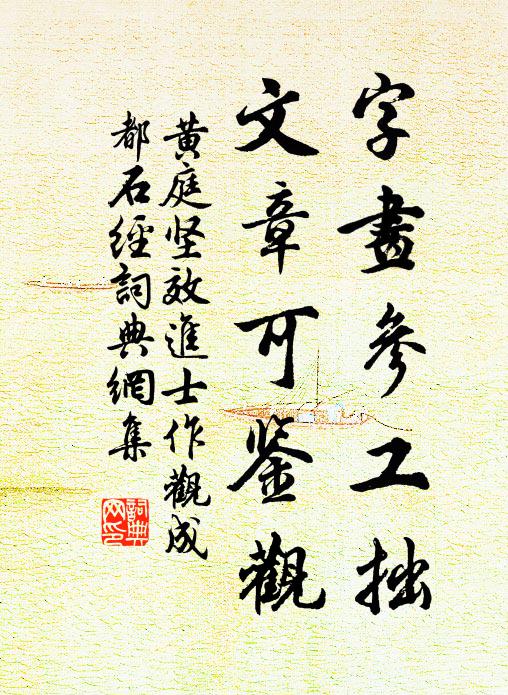 字畫參工拙
文章可鉴觀
黄庭坚效進士作觀成
都石經詞典網集
詞典
网印